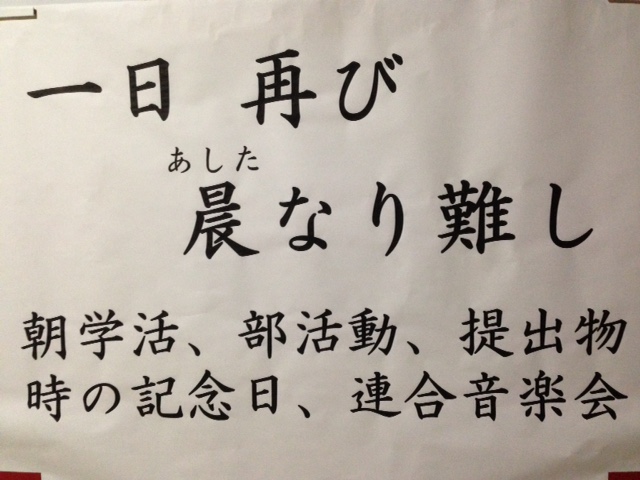 一日 再び
あした
晨なり難し
朝学活、部活動、提出物
時の記念日、連合音楽会